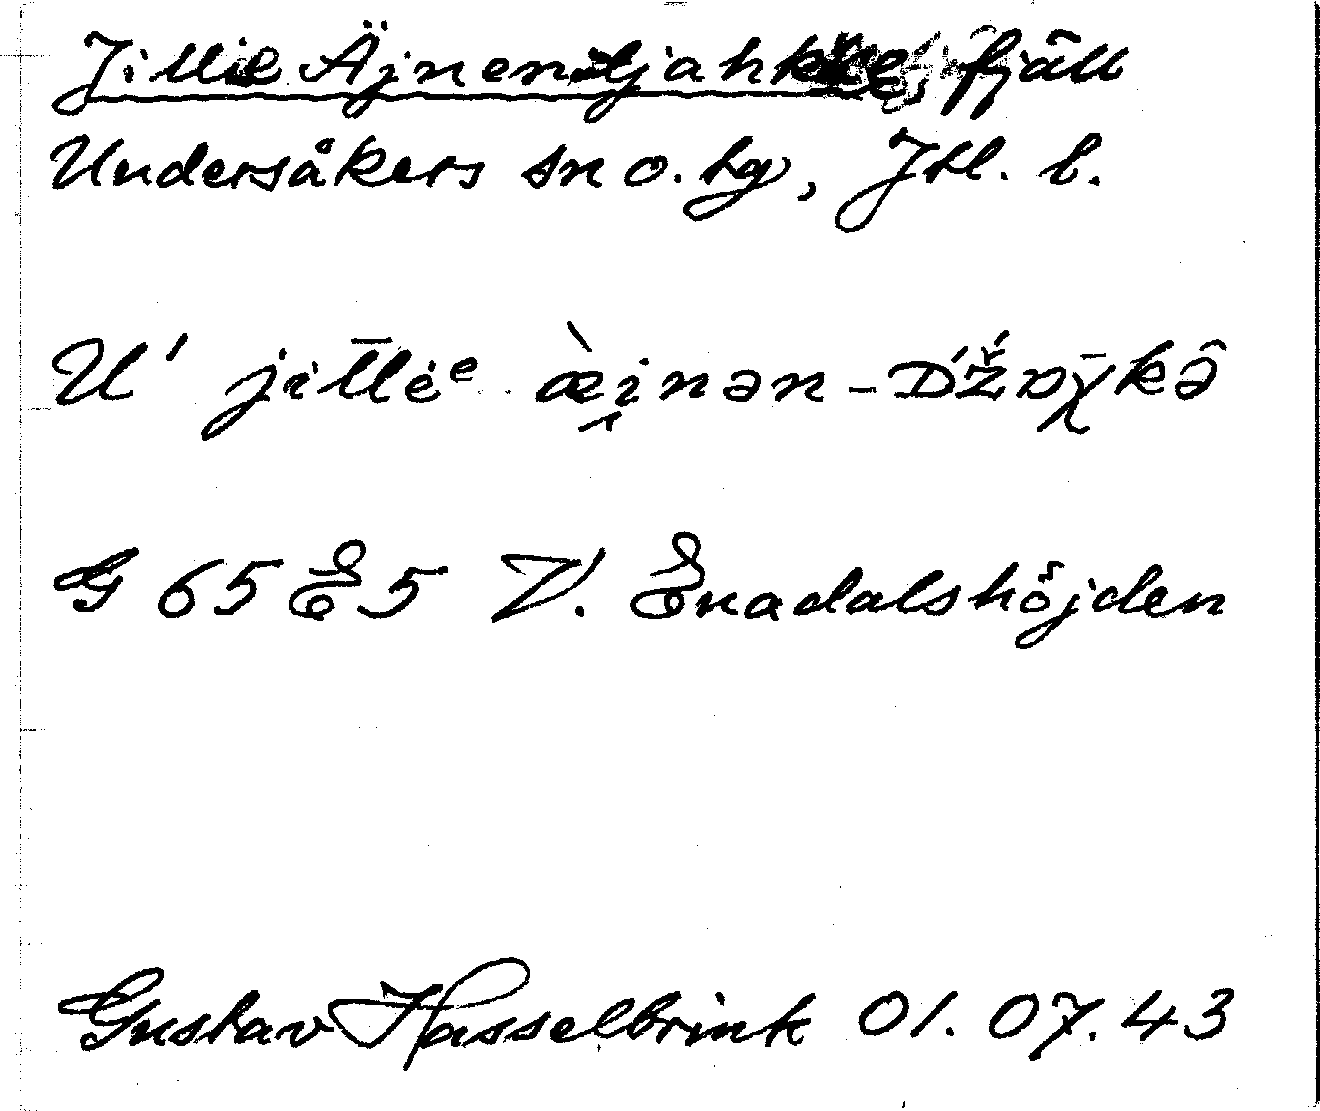 Jillie Äjnentjahke, fjäll
Undersåkers sn o. hg, Jtl. l.
U' jīllėᵉ æ̀i̯nən-ᴅ́ž́ɒχ̄kə̂
G 65 E 5 V. Enadalshöjden
Gustav Hasselbrink 01.07.43